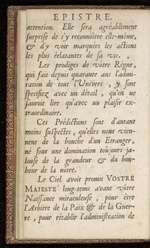 EPISTRE.
attention. Elle sera agréablement
surprise de s'y reconnoître elle-même,
& d'y voir marquées les actions
les plus éclatantes de sa vie.
Les prodiges de vôtre Regne,
qui fait depuis quarante ans l'admi-
ration de tout l'Univers, y sont
specifiez avec un détail, qu'on ne
sauroit lire qu'avec un plaisir ex-
traordinaire.
Ces Prédictions sont d'autant
moins suspectes, qu'elles nous vien-
nent de la bouche d'un Etranger,
né sous une domination toûjours ja-
louse de la grandeur & du bon-
heur de la nôtre.
Le Ciel avoit promis VOSTRE
MAJESTÉ long-tems avant vôtre
Naissance miraculeuse, pour être
l'Arbitre de la Paix & de la Guer-
re, pour rétablir l'administration de